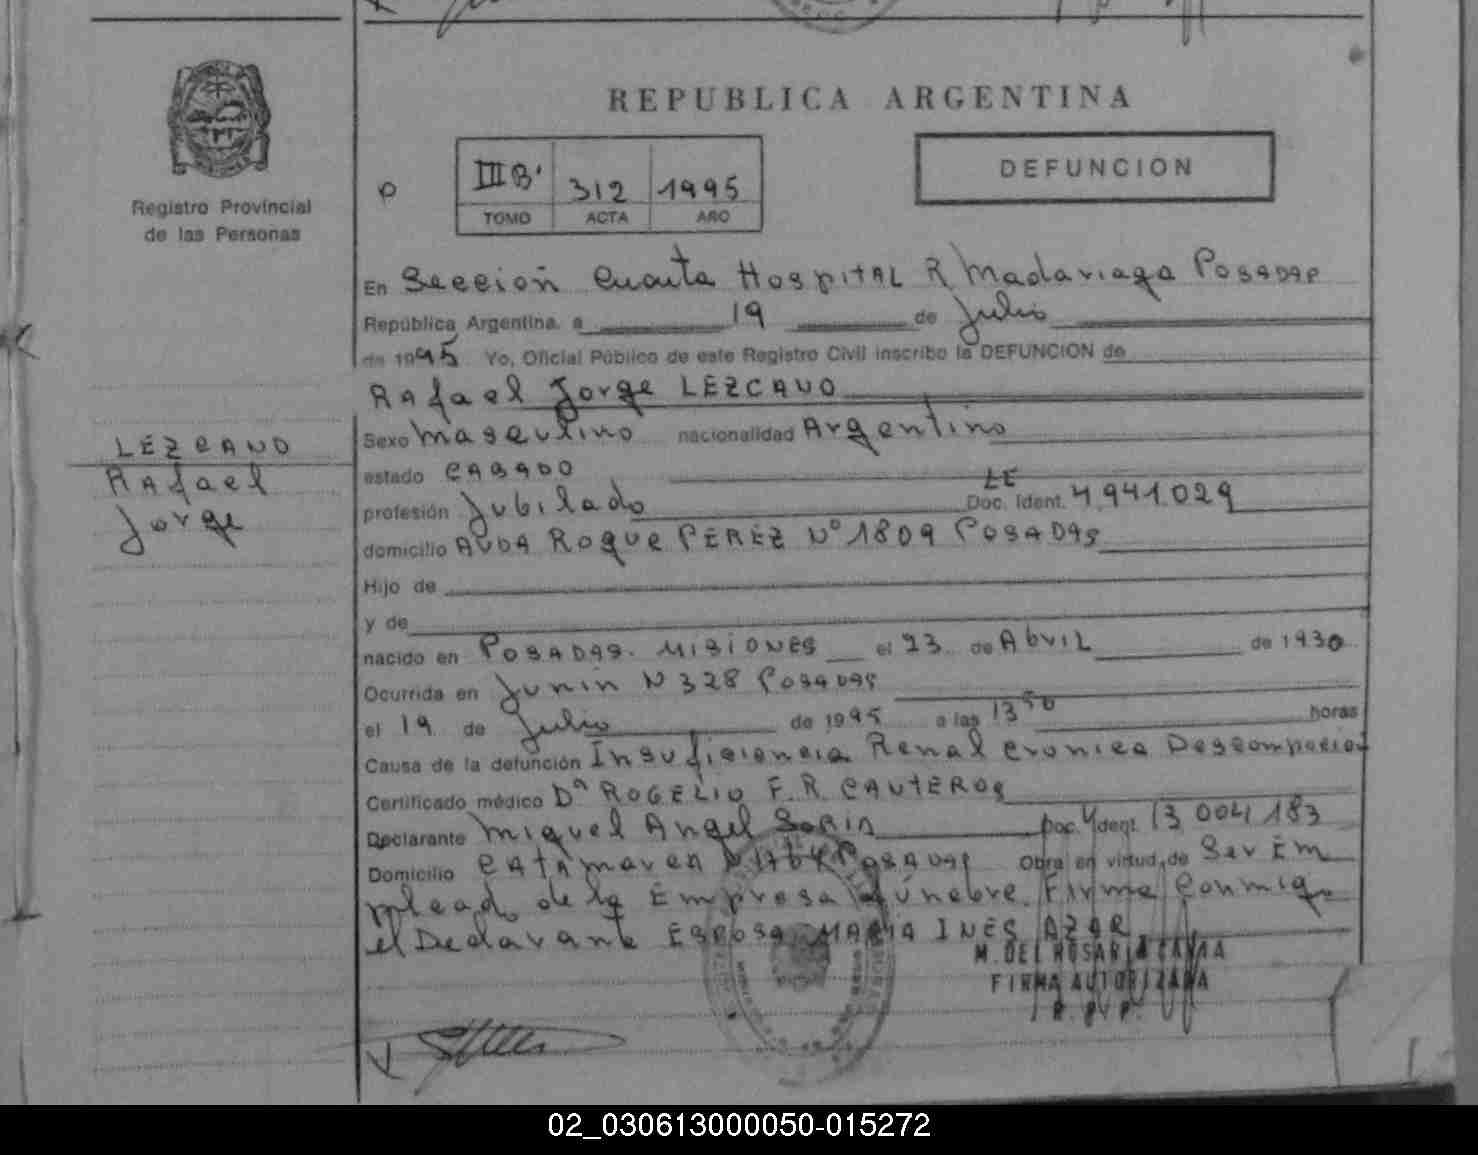 REPUBLICA ARGENTINA
DEFUNCION
III B' 312 1995
TOMO ACTA AÑO
Registro Provincial
de las Personas
En Sección Cuarta Hospital R Madariaga Posadas
República Argentina, a 19 de Julio
de 1995 Yo, Oficial Público de este Registro Civil inscribo la DEFUNCION de
Rafael Jorge LEZCANO
LEZCANO
Rafael
Jorge
Sexo Masculino nacionalidad Argentino
estado CASADO
profesión Jubilado LE Doc. Ident. 4.941.029
domicilio AVDA Roque PÉREZ Nº 1809 POSADAS
Hijo de
y de
nacido en POSADAS. MISIONES el 23 de Abril de 1930
Ocurrida en Junin N 328 Posadas
el 19 de Julio de 1995 a las 13 50 horas
Causa de la defunción Insuficiencia Renal cronica
Certificado médico ROGELIO F. R. CANTEROS
Declarante Miguel Angel Doc. Ident. 13 004 183
Domicilio CATAMARCA POSADAS Obra en virtud de Ser Em
pleado de la Empresa Fúnebre. Firma Conmigo
el Declarante ESPOSA MARIA INES AZAR
M. DEL ROSARIO
FIRMA AUTORIZADA
R. P. P.
02_030613000050-015272